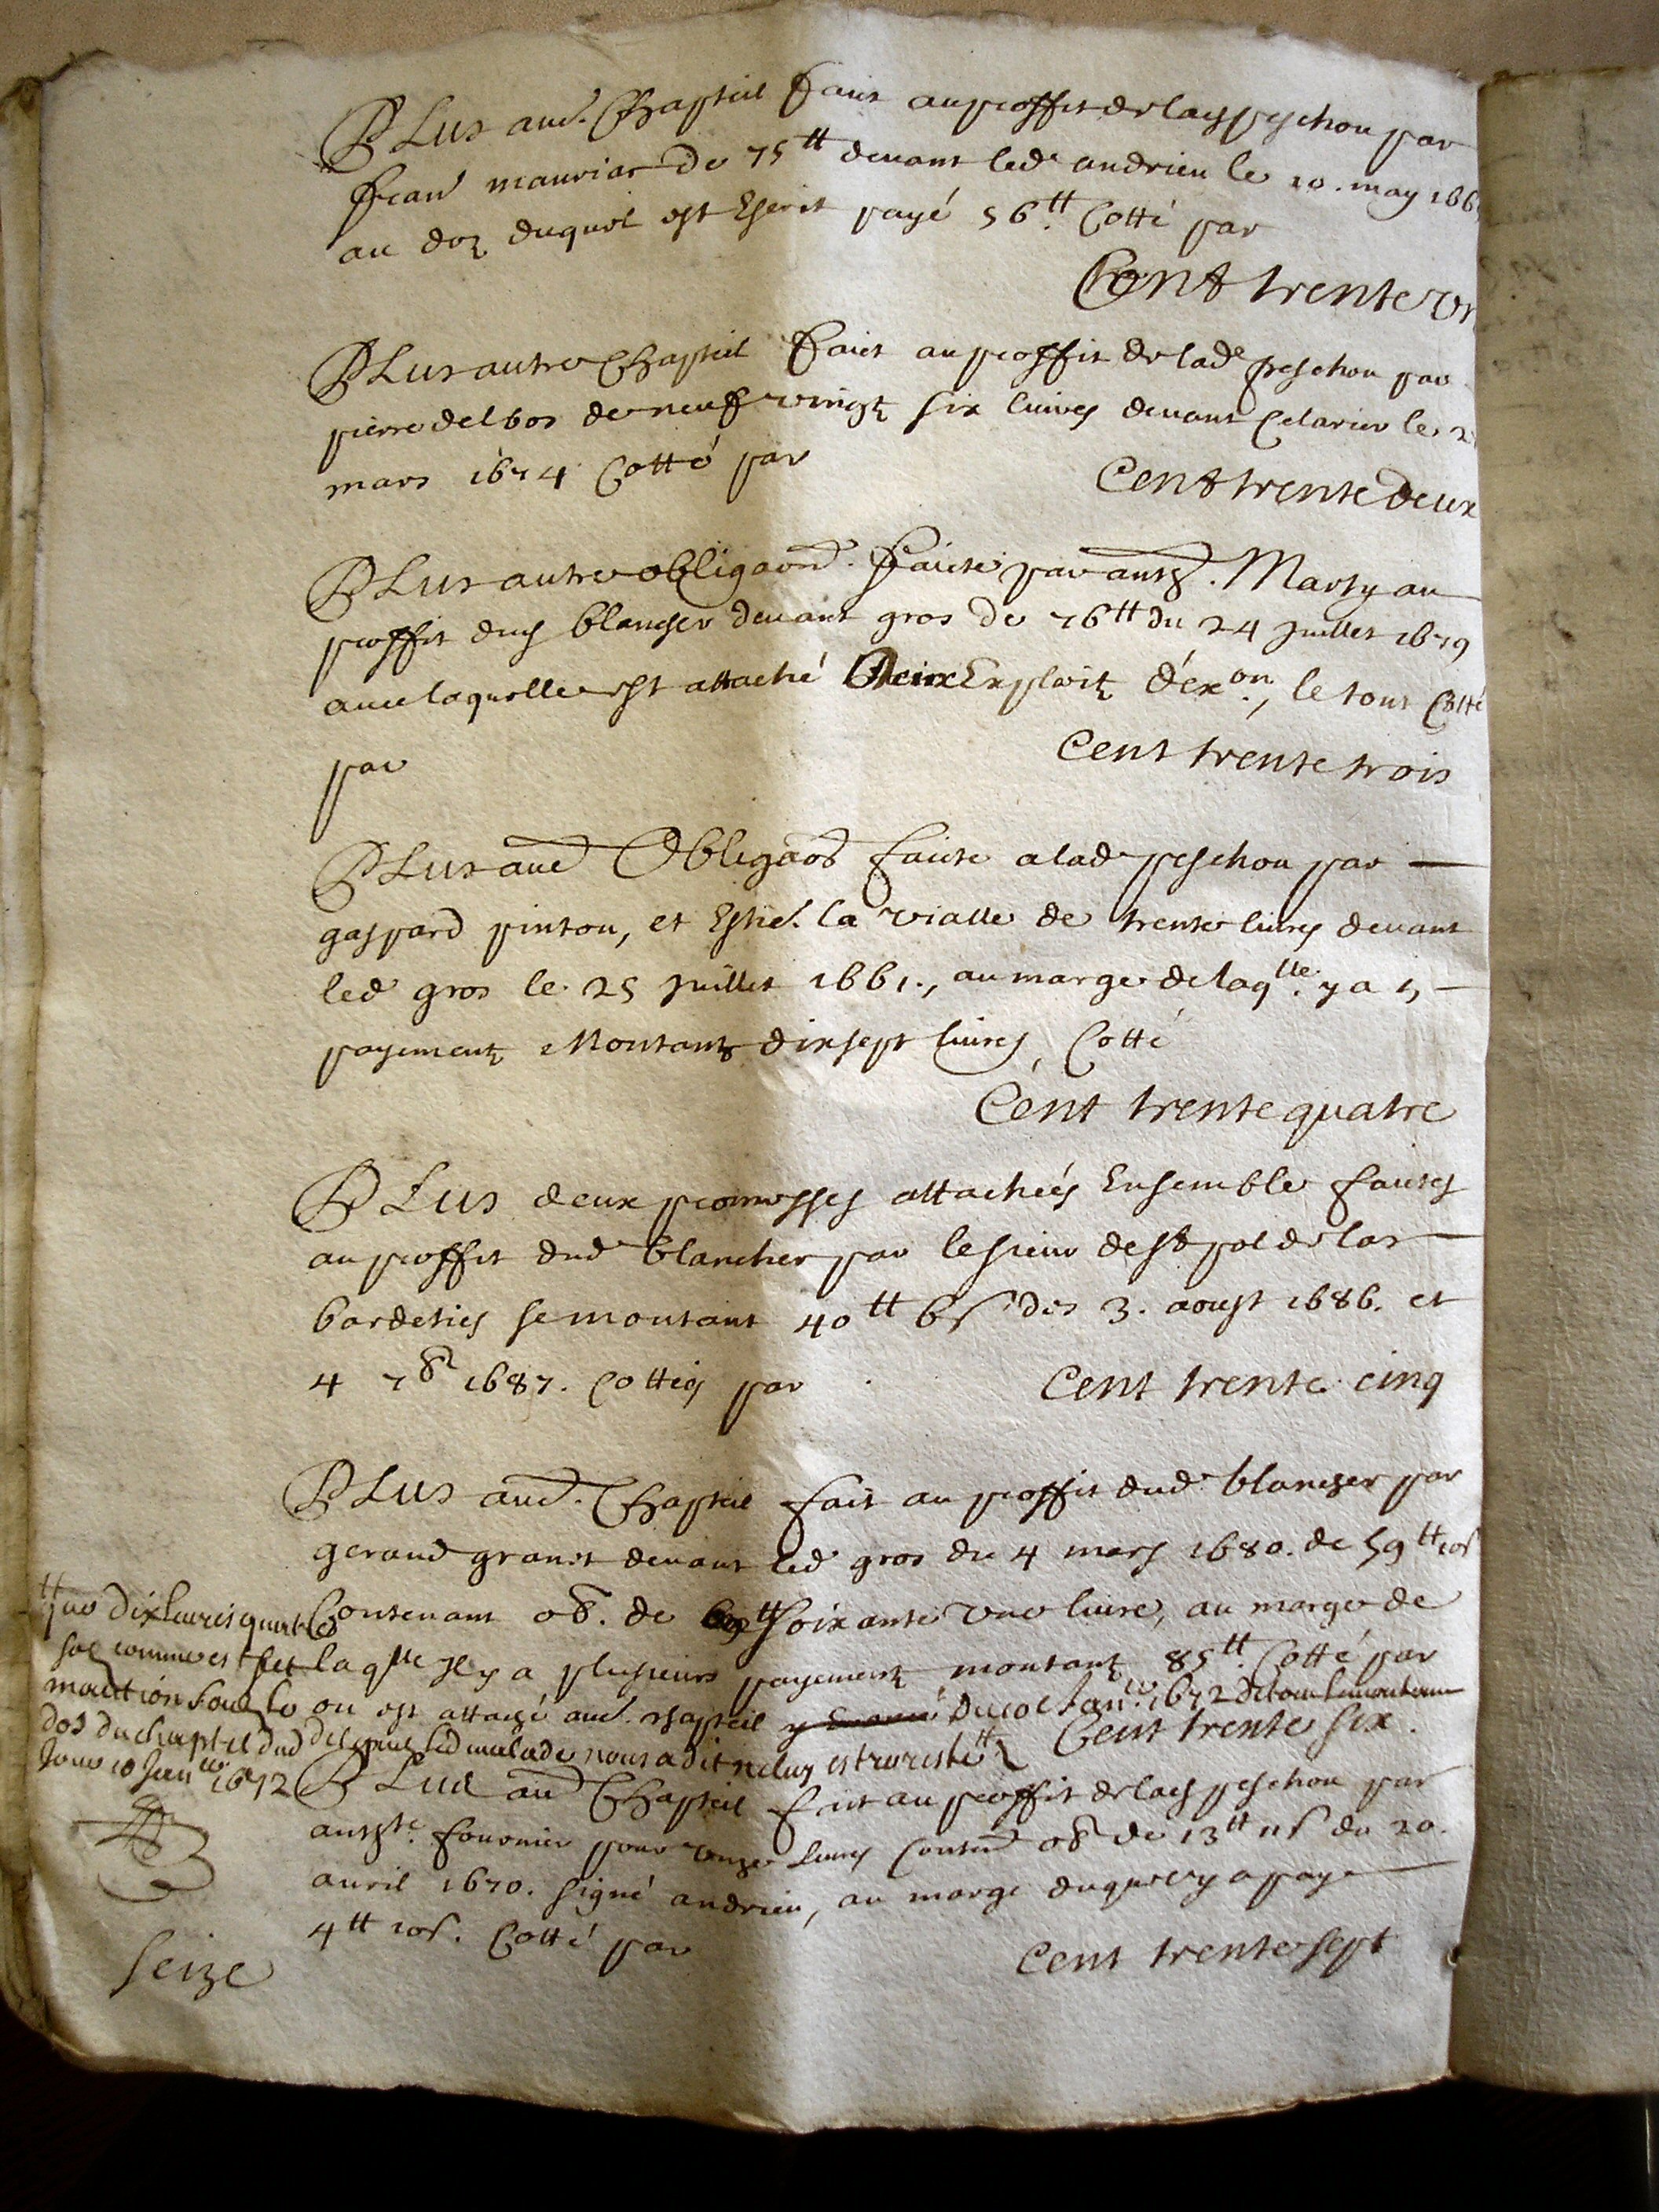 PLus aud. Chapteil faict au proffit de lad peschou par
Jean mauriac de 75tt devant led andrieu le 20. may 166
au doz duquel est Escrit payé 56tt. Cotté par
Cent trente un
PLus autre Chapteil faict au proffit de lade peschou par
pierre delbos de neuf vingtz six livres devant Celarier le 2
mars 1674 Cotté par
Cent trente deux
PLus autre obligaon. faicte par anth. Marty au
proffit dud blancher devant gros de 76tt du 24 Juillet 1679
avec laquelle est attaché deux Exploitz d'exon., le tout Cotté
par
Cent trente trois
PLus aue Obligaon faicte a lad peschou par
gaspard pinton, et Estie. la vialle de trente livres devant
led gros le 25 Juillet 1661., au marge de laqlle. y a 5
payementz Montant dix sept livres, Cotté
Cent trente quatre
PLus deux promesses attachées Ensemble faictes
au proffit dud blancher par le sieur de st pol de las
barderies se montant 40tt 6s des 3. aoust 1686. et
4 7br 1687. Cottées par
Cent trente cinq
PLus aue. Chapteil fait au proffit dud blancher par
geraud granet devant led gros du 4 mars 1680. de 59tt 10s
Contenant ob. de soixante une livre, au marge de
laqlle Il y a plusieurs payementz montant 85tt. Cotté par
ou est attaché aue. chapteil du 10e Janer. 1672
Cent trente six.
dix livres quatre
sol comme est fet
mention sous le
dos du chaptel dud
jour 10 Janer 1672
led malade nous a dit
PLus aue Chapteil fait au proffit de lad peschou par
anthe. fournier pour onze livres Contend ob de 13tt 11s du 20.
avril 1670. signé andrieu, au marge duquel y a payé
4tt 10s. Cotté par
Cent trente sept
Seize